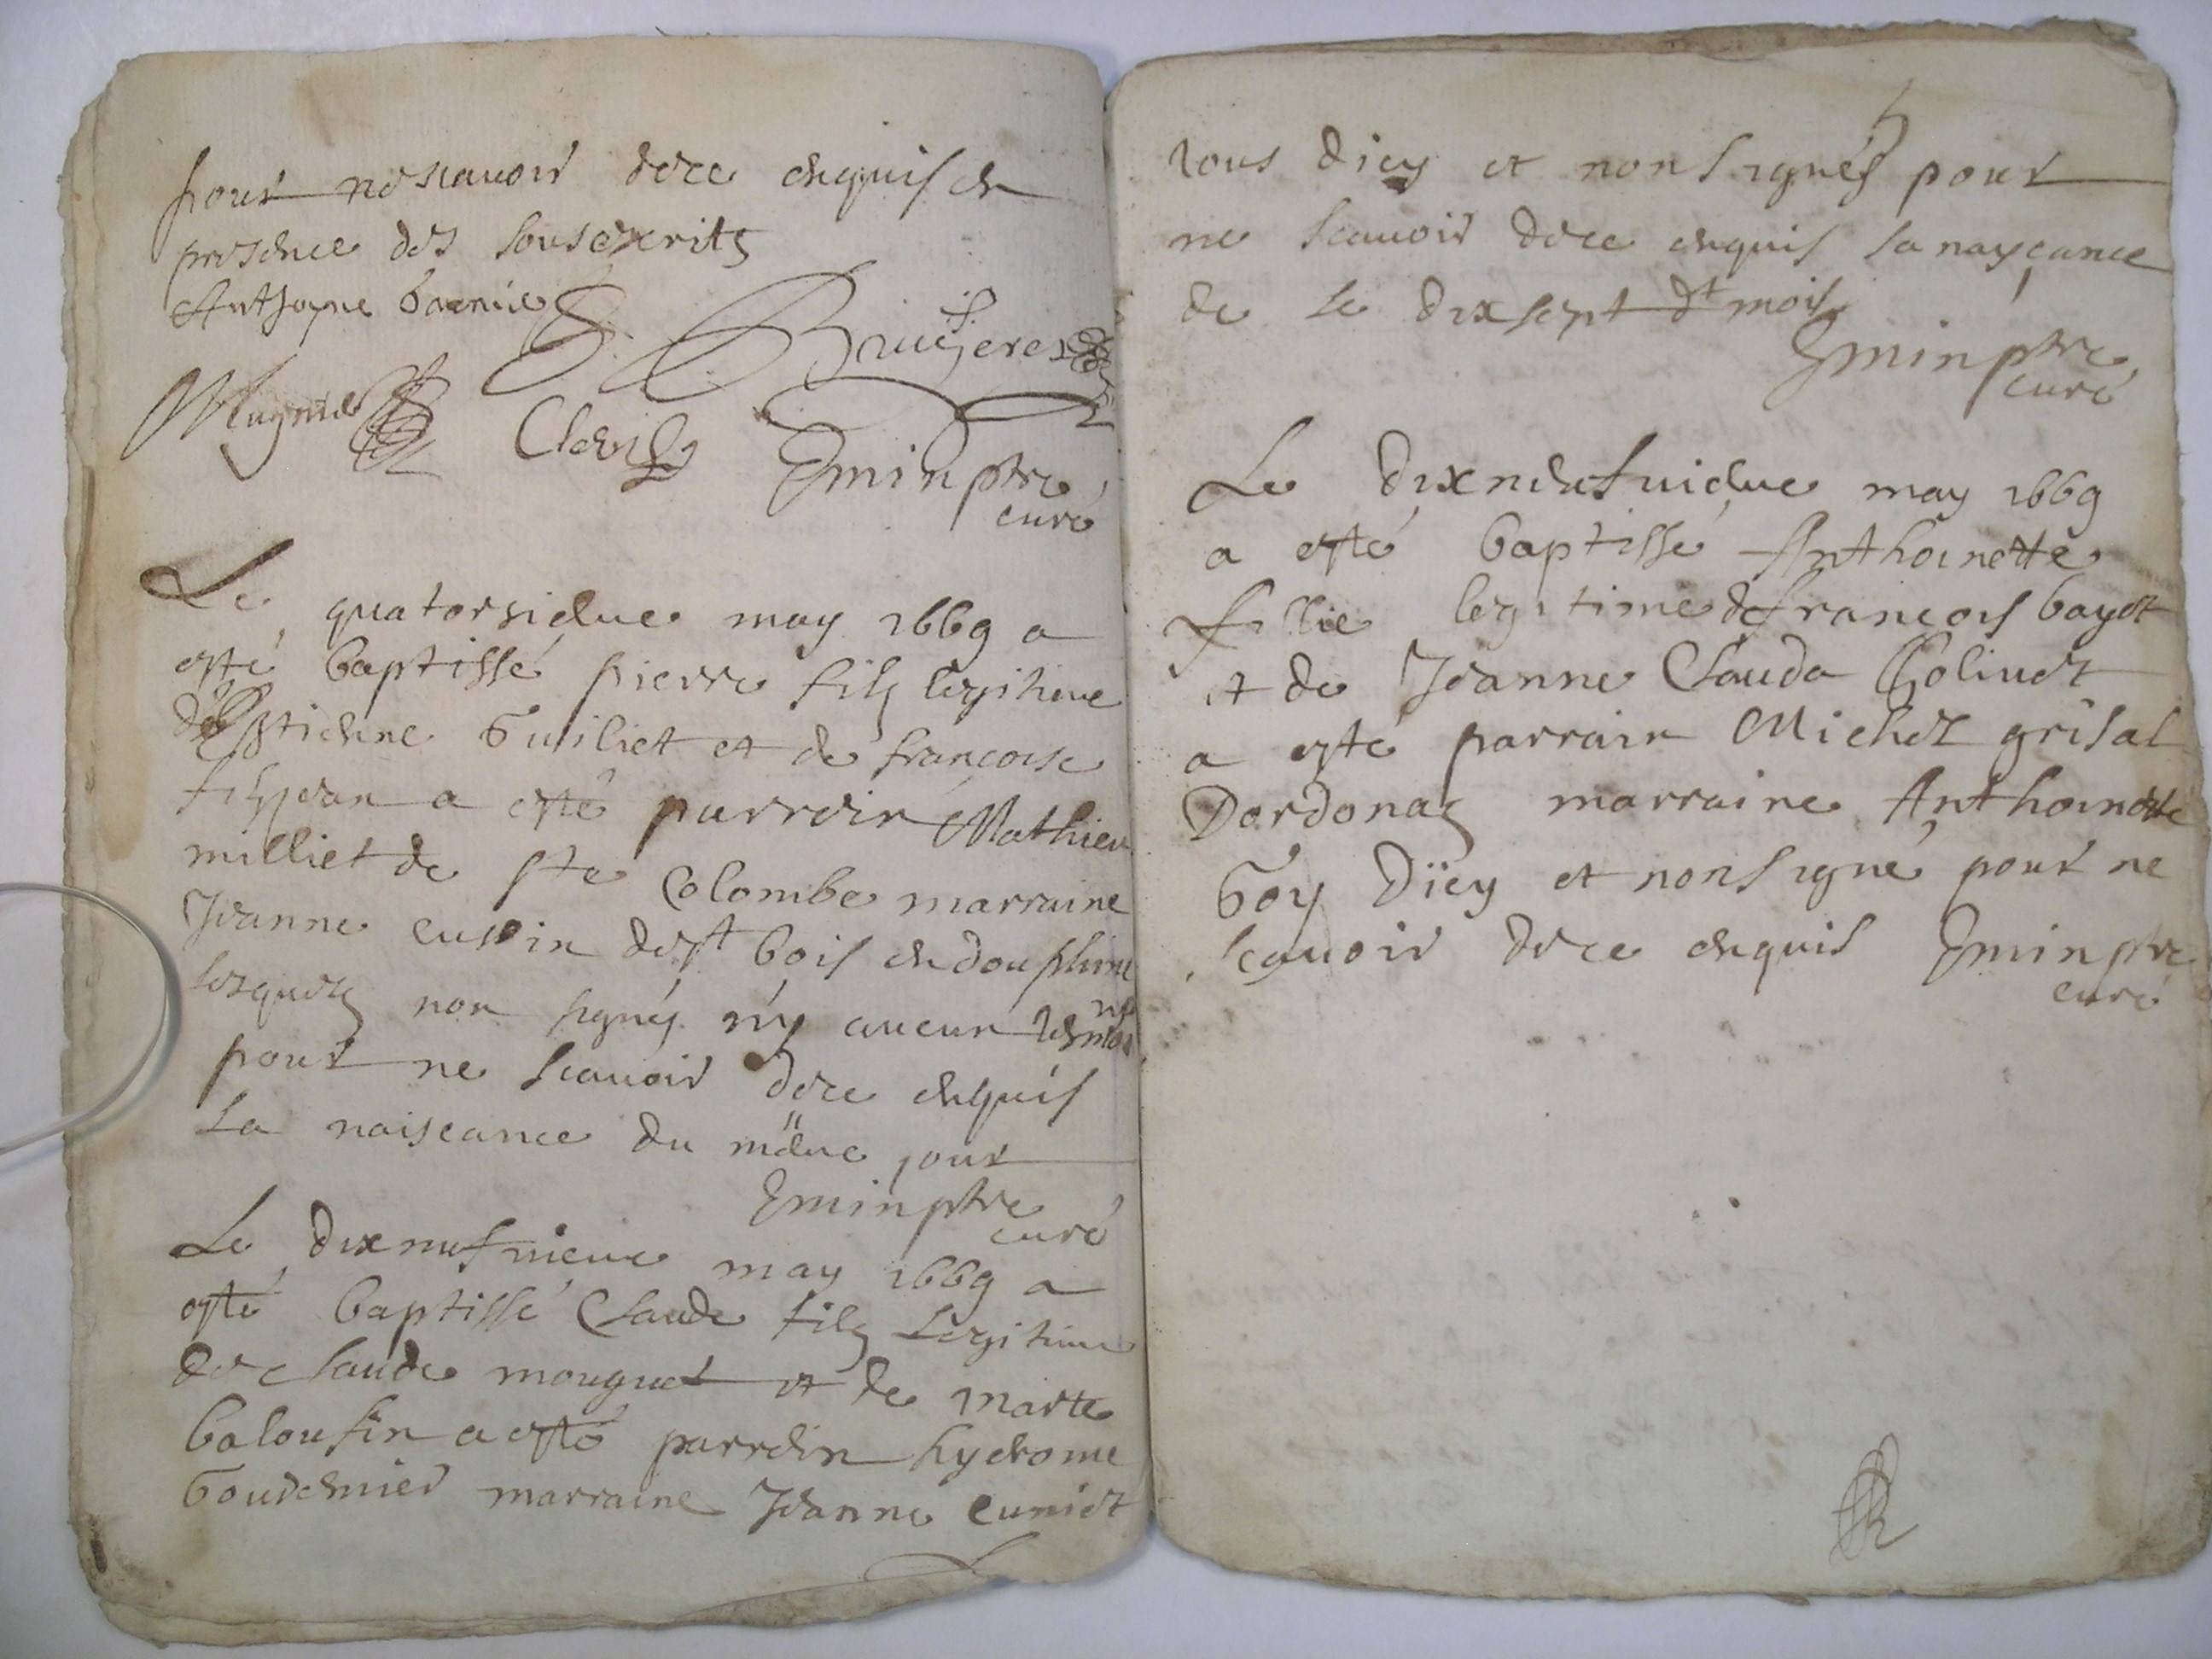 pour ne scauoir de ce enquis en
presence des sousexcrits
Anthoyne
Bruijere
Mugnie
Emin ptre
curé
Le quatorsieme may 1669 a
esté baptissé pierre filz legitime
de Estienne Guiliet et de françoise
filljean a esté parrein Mathieu
milliet de ste Colombe marraine
Jeanne cussin de st bois en douphine
lesquelz non signéz ny aucun
pour ne scauoir de ce enquis
La naiscance du meme jour
Emin ptre
curé
Le dixneufuieme may 1669 a
esté baptissé Claude filz Legitime
de claude mouguet et de marte
baloufin a esté parrein hyerome
Gouuernier marraine Jeanne cuniet
tous dicy et non signés pour
ne scauoir de ce enquis sa nayçance
de le dixsept dt mois
Emin ptre
curé
Le dixneufuieme may 1669
a esté baptissé Anthoinette
fillie legitime de francois bayet
et de Jeanne Clauda Coliuet
a esté parrain Michel grisal
Dordonaz marraine Anthoinette
Goy Dïcy et non signé pour ne
scauoir de ce enquis Emin ptre
curé